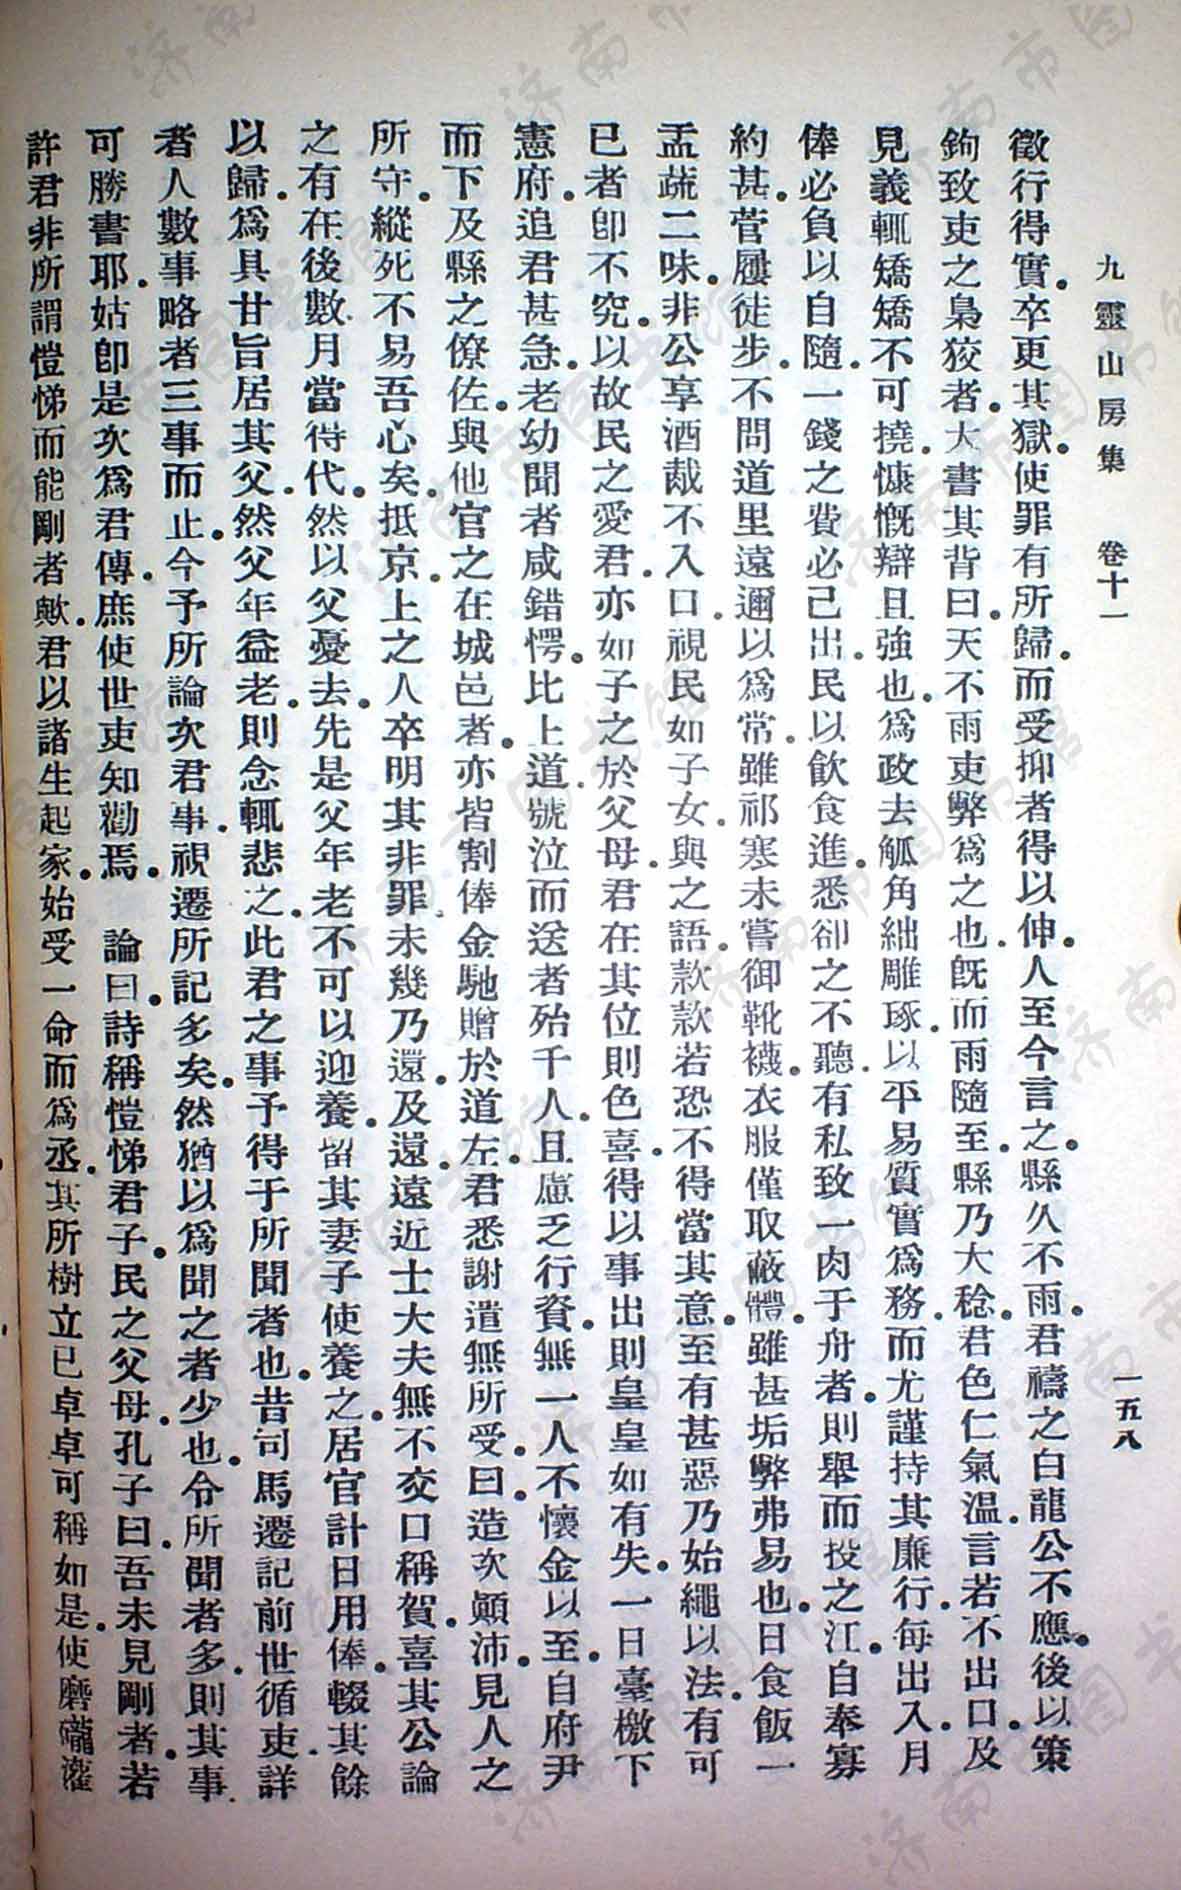 九靈山房集　卷十一　一五八
徵行得實。卒更其獄。使罪有所歸。而受抑者得以伸。人至今言之。縣久不雨。君禱之白龍公不應。後以策
鉤致吏之梟狡者。大書其背曰。天不雨吏弊爲之也。旣而雨隨至。縣乃大稔。君色仁氣溫。言若不出口。及
見義輒矯矯不可撓。慷慨辯且強也。爲政去觚角絀雕琢。以平易質實爲務。而尤謹持其廉行。每出入。月
俸必負以自隨。一錢之費必己出。民以飲食進。悉卻之不聽。有私致一肉于舟者。則舉而投之江。自奉寡
約甚。菅屨徒步。不問道里遠邇。以爲常。雖祁寒未嘗御靴襪。衣服僅取蔽體。雖甚垢弊弗易也。日食飯一
盂蔬二味。非公享酒胾不入口。視民如子女。與之語。款款若恐不得當其意。至有甚惡乃始繩以法。有可
已者卽不究。以故民之愛君。亦如子之於父母。君在其位則色喜。得以事出則皇皇如有失。一日臺檄下
憲府。追君甚急。老幼聞者咸錯愕。比上道。號泣而送者殆千人。且慮乏行資。無一人不懷金以至。自府尹
而下及縣之僚佐。與他官之在城邑者。亦皆割俸金馳贈於道左。君悉謝遣無所受。曰。造次顚沛。見人之
所守。縱死不易吾心矣。抵京。上之人卒明其非罪。未幾乃還。及還。遠近士大夫無不交口稱賀。喜其公論
之有在。後數月當得代。然以父憂去。先是父年老不可以迎養。留其妻子使養之。居官計日用俸。輟其餘
以歸。爲具甘旨居其父。然父年益老。則念輒悲之。此君之事予得于所聞者也。昔司馬遷記前世循吏。詳
者人數事略者三事而止。今予所論次君事。視遷所記多矣。然猶以爲聞之者少也。令所聞者多。則其事
可勝書耶。姑卽是次爲君傳。庶使世吏知勸焉。　論曰。詩稱愷悌君子。民之父母。孔子曰。吾未見剛者。若
許君非所謂愷悌而能剛者歟。君以諸生起家。始受一命而爲丞。其所樹立已卓卓可稱如是。使磨礲灌